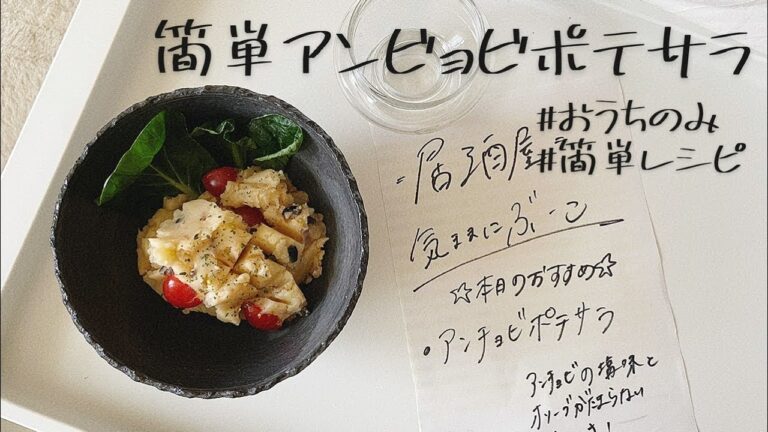 簡単アンビョビポテサラ
#おうちのみ
#簡単レシピ
居酒屋
気ままにぶーこ
☆本日のおすすめ☆
・アンチョビポテサラ
アンチョビの塩味と
オリーブがたまらない